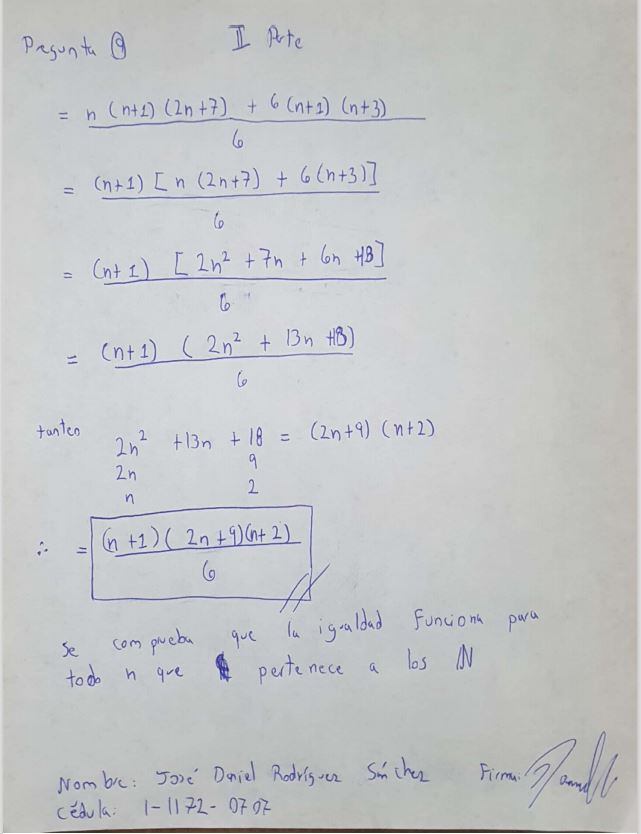 Pregunta 9 II Parte
= n (n+1) (2n+7) + 6 (n+1) (n+3)
6
= (n+1) [ n (2n+7) + 6 (n+3)]
6
= (n+1) [ 2n² + 7n + 6n + 18]
6
= (n+1) ( 2n² + 13n + 18)
6
tanteo 2n² + 13n + 18 = (2n+9) (n+2)
2n 9
n 2
∴ = (n+1) ( 2n+9)(n+2)
6
Se comprueba que la igualdad funciona para
todo n que pertenece a los ℕ
Nombre: José Daniel Rodríguez Sánchez Firma:
Cédula: 1-1172-0707